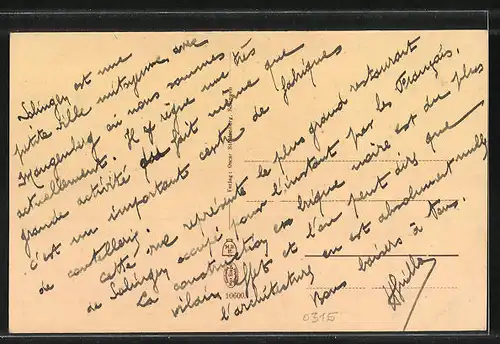 Solingen est une
petite ville mitoyenne avec
Mangenberg où nous sommes
actuellement. Il y règne une très
grande activité du fait même que
c'est un important centre de fabriques
de coutellerie.
Cette vue représente le plus grand restaurant
de Solingen occupé pour l'instant par les Français.
La construction en brique noire est du plus
vilain effet et l'on peut dire que
l'architecture en est absolument nulle
Bons baisers à tous.
Verlag: Oscar
10600
0315